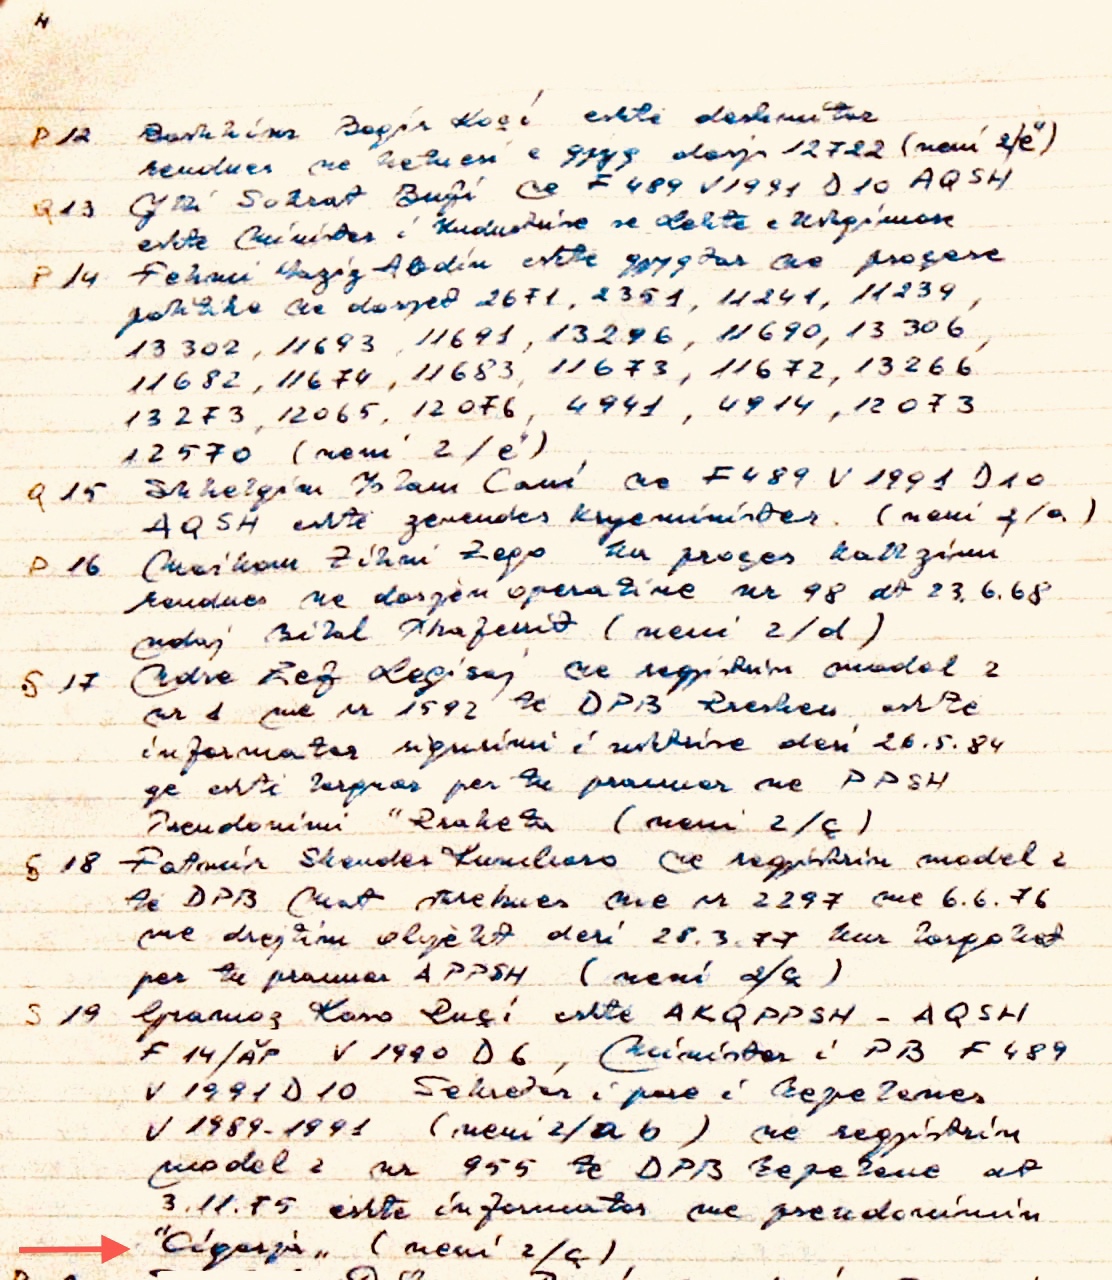 4
P 12 Bashkim Bogir Koçi eshte deshmitar
rendues ne hetuesi e gjyq dosja 12722 (neni 2/ë)
Q 13 Ylli Sokrat Bufi ne F 489 V 1991 D 10 AQSH
eshte Minister i Industrise se Lehte e Ushqimore
P 14 Fehmi Abdiu eshte gjyqtar ne proçese
politike ne dosjet 2671, 2351, 11241, 11239,
13302, 11693, 11691, 13296, 11690, 13306,
11682, 11674, 11683, 11673, 11672, 13266
13273, 12065, 12076, 4941, 4914, 12073
12570 (neni 2/ë)
Q 15 Shkelqim Islam Cani ne F 489 V 1991 D 10
AQSH eshte zevendes kryeminister. (neni 2/a)
P 16 Maikom Zihni Zeqo ka proçes kallzimi
rendues ne dosjen operative nr 98 dt 23.6.68
ndaj Bilal Xhaferrit (neni 2/d)
S 17 Ndre Zef Legisaj ne regjistrin model 2
nr 1 me nr 1592 te DPB Rreshen eshte
informator sigurimi i ushtrise deri 26.5.84
qe eshte larguar per tu pranuar ne PPSH
Pseudonimi "Raketa (neni 2/ç)
S 18 Fatmir Skender Kumbaro ne regjistrin model 2
te DPB Mat me nr 2297 me 6.6.76
me drejtim objekt deri 28.3.77 kur largohet
per tu pranuar APPSH (neni 2/ç)
S 19 Gramoz Xoxo Ruçi eshte AKQPPSH - AQSH
F 14/AP V 1990 D 6, Minister i PB F 489
V 1991 D 10 Sekretar i pare i Tepelenes
V 1989-1991 (neni 2/a b) ne regjistrin
model 2 nr 955 te DPB Tepelene dt
3.11.75 eshte informator me pseudonimin
"Cigarja" (neni 2/ç)